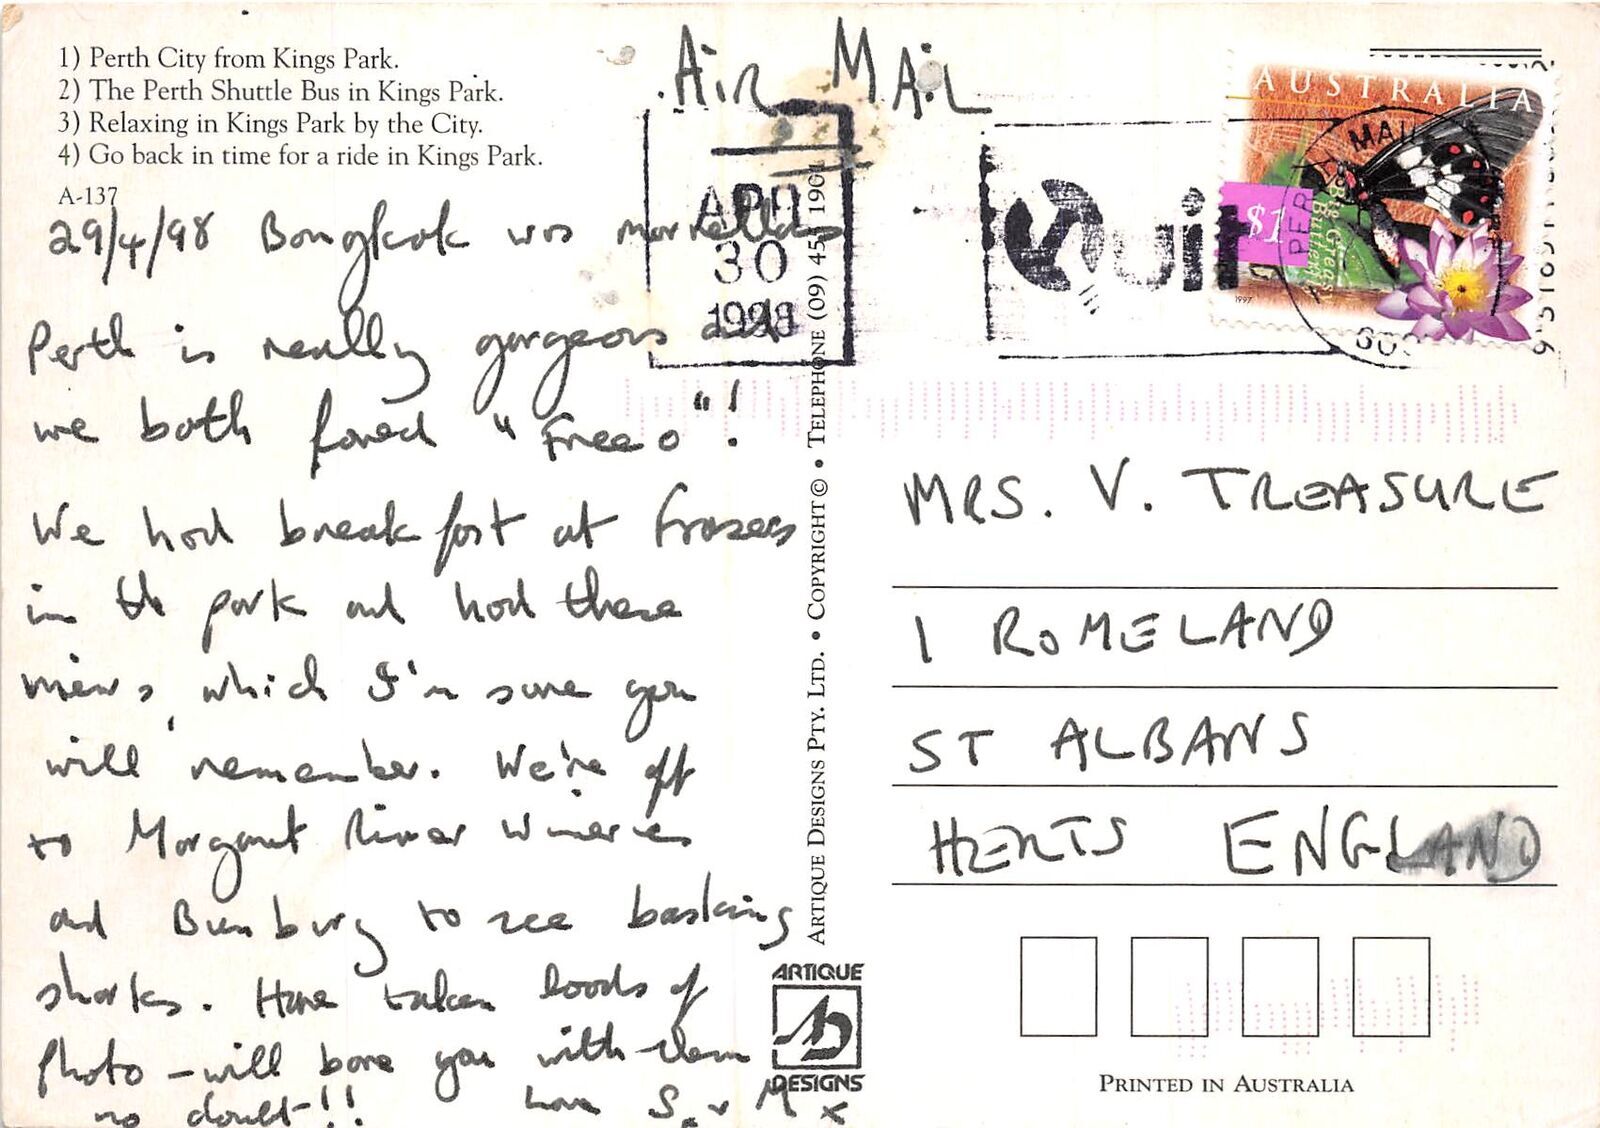 1) Perth City from Kings Park.
2) The Perth Shuttle Bus in Kings Park.
3) Relaxing in Kings Park by the City.
4) Go back in time for a ride in Kings Park.
A-137
29/4/98 Bongkok was marvellous
Perth is really gorgeous and
we both loved "Freeo"!
We had breakfast at Frasers
in the park and had these
views, which I'm sure you
will remember. We're off
to Morgaret River Wineries
and Bunburg to see basking
sharks. Have taken loads of
photo - will bore you with them
no doubt!!
Love S. & M x
ARTIQUE DESIGNS PTY. LTD. • COPYRIGHT © • TELEPHONE (09) 45 1901
ARTIQUE
AD
DESIGNS
AIR MAIL
APR
30
1998
Quit
PERTH MAIL
AUSTRALIA
$1
Big Greasy Butterfly
1997
MRS. V. TREASURE
1 ROMELAND
ST ALBANS
HERTS ENGLAND
PRINTED IN AUSTRALIA